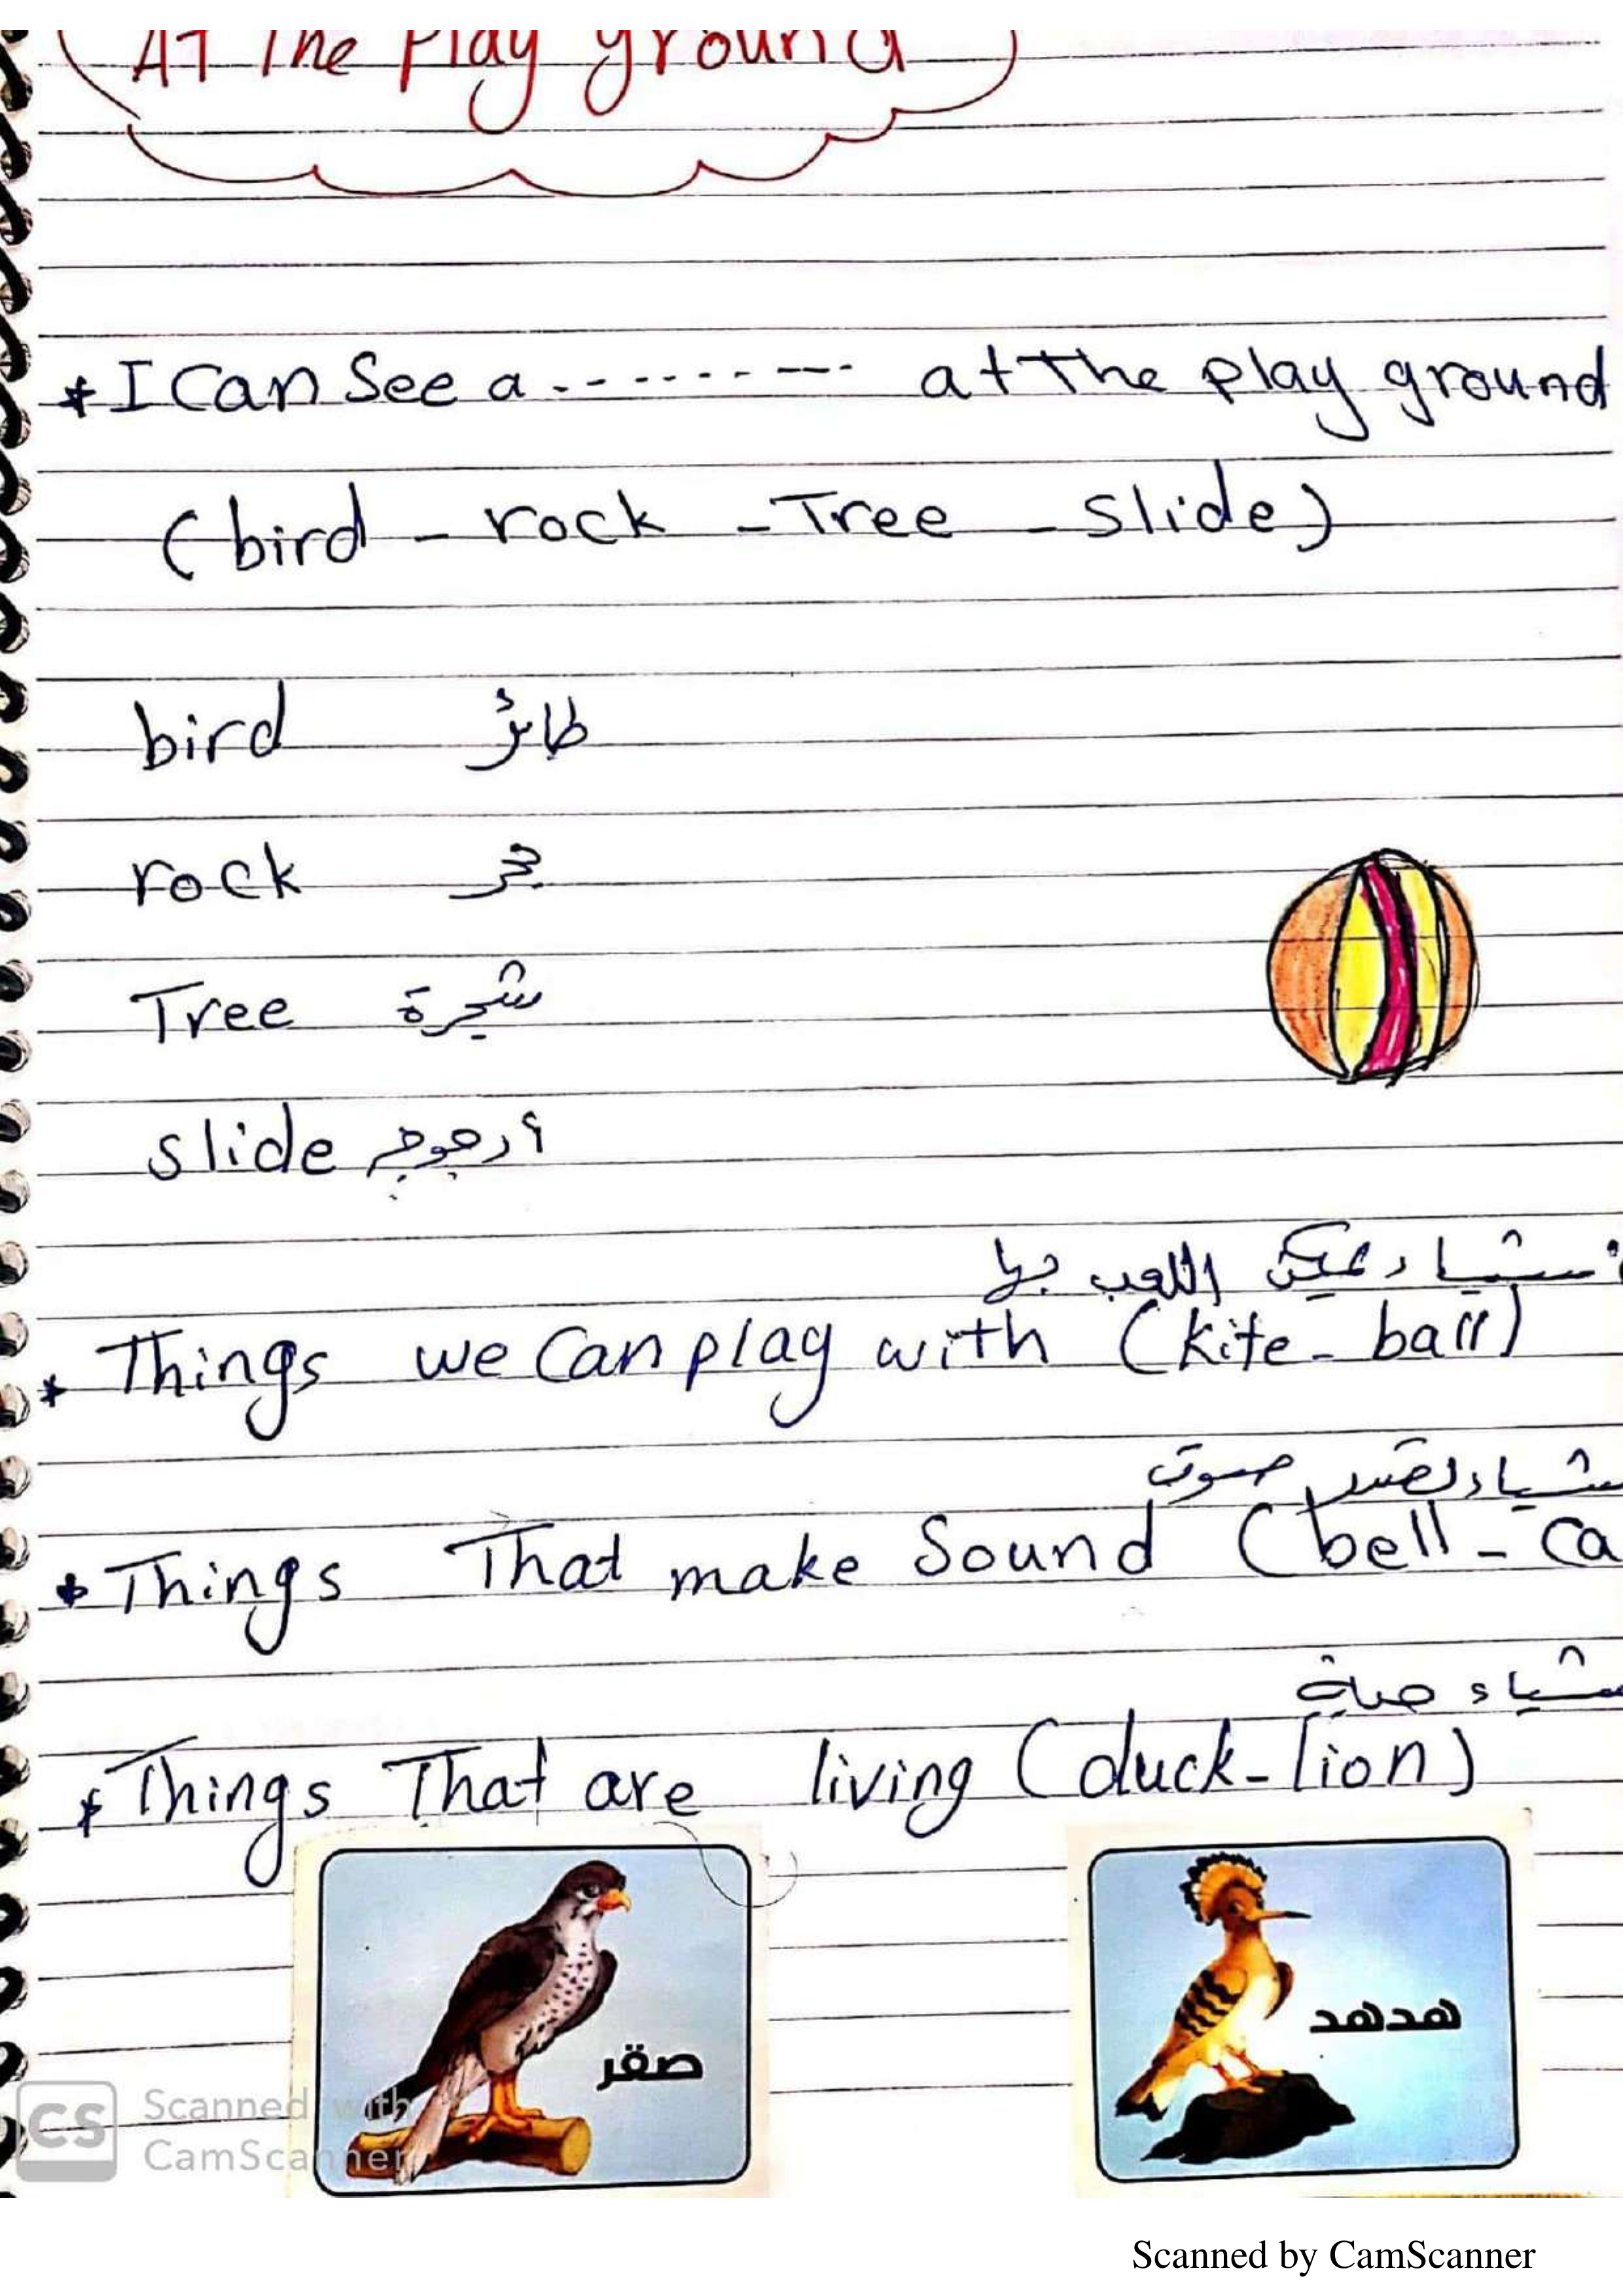 At The Play ground
* I Can See a ---------- at The play ground
(bird - rock - Tree - slide)
bird طائر
rock حجر
Tree شجرة
slide أرجوحة
أشياء يمكن اللعب بها
* Things we Can play with (kite - ball)
شياء تصدر صوت
* Things That make Sound (bell - Ca
شياء حية
* Things That are living (duck - lion)
صقر
هدهد
CS Scanned with
CamScanner
Scanned by CamScanner